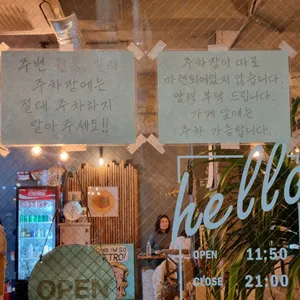 주변 원룸, 빌라
주차장에는
절대 주차하지
말아주세요!!
주차장이 따로
마련되어있지 않습니다.
양해 부탁 드립니다.
가게 앞에는
주차 가능합니다.
hello
OPEN 11:50
CLOSE 21:00
OPEN